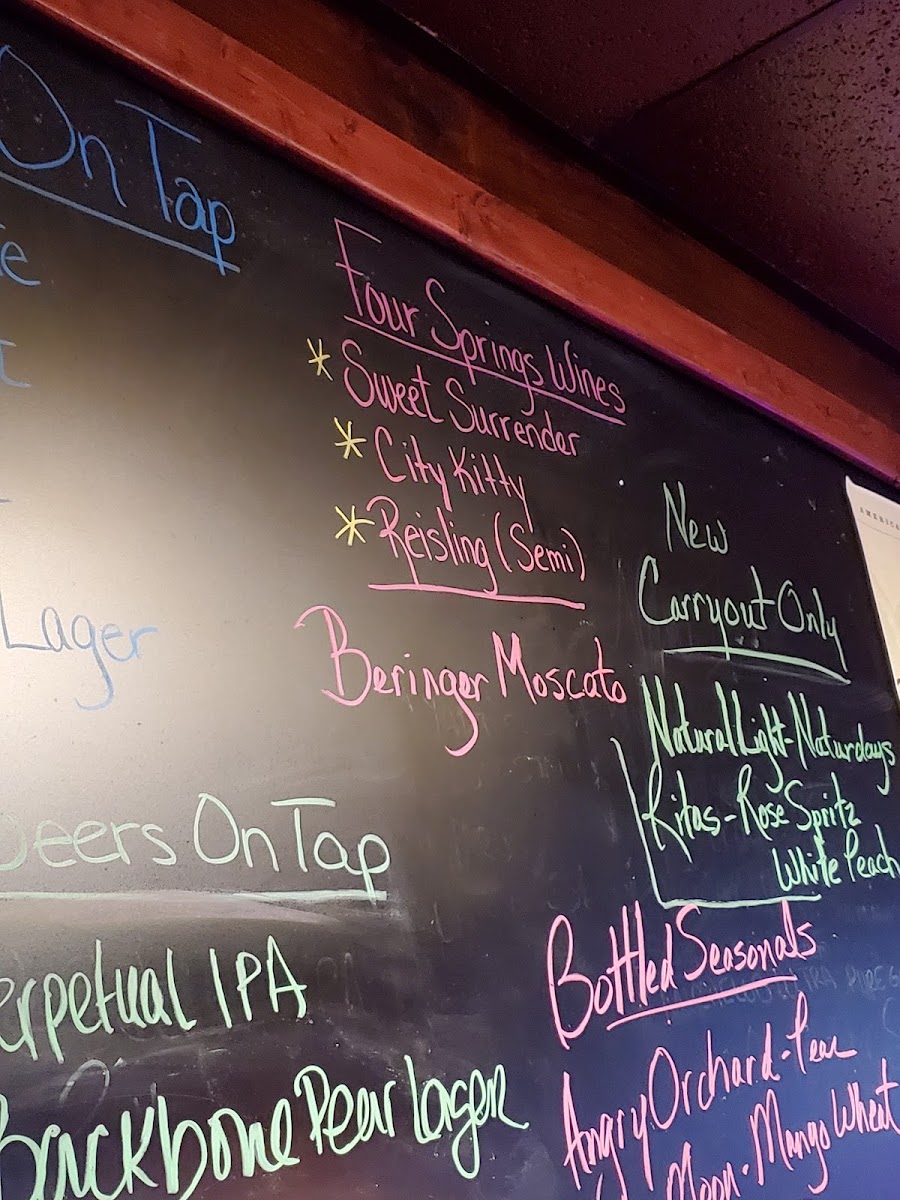 On Tap
Lager
Four Springs Wines
* Sweet Surrender
* City Kitty
* Reisling (Semi)
Beringer Moscato
New
Carryout Only
Natural Light-Naturdays
Ritas-Rose Spritz
White Peach
eers On Tap
erpetual IPA
Backbone Pear Lager
Bottled Seasonals
Angry Orchard-Pear
Moon-Mango Wheat